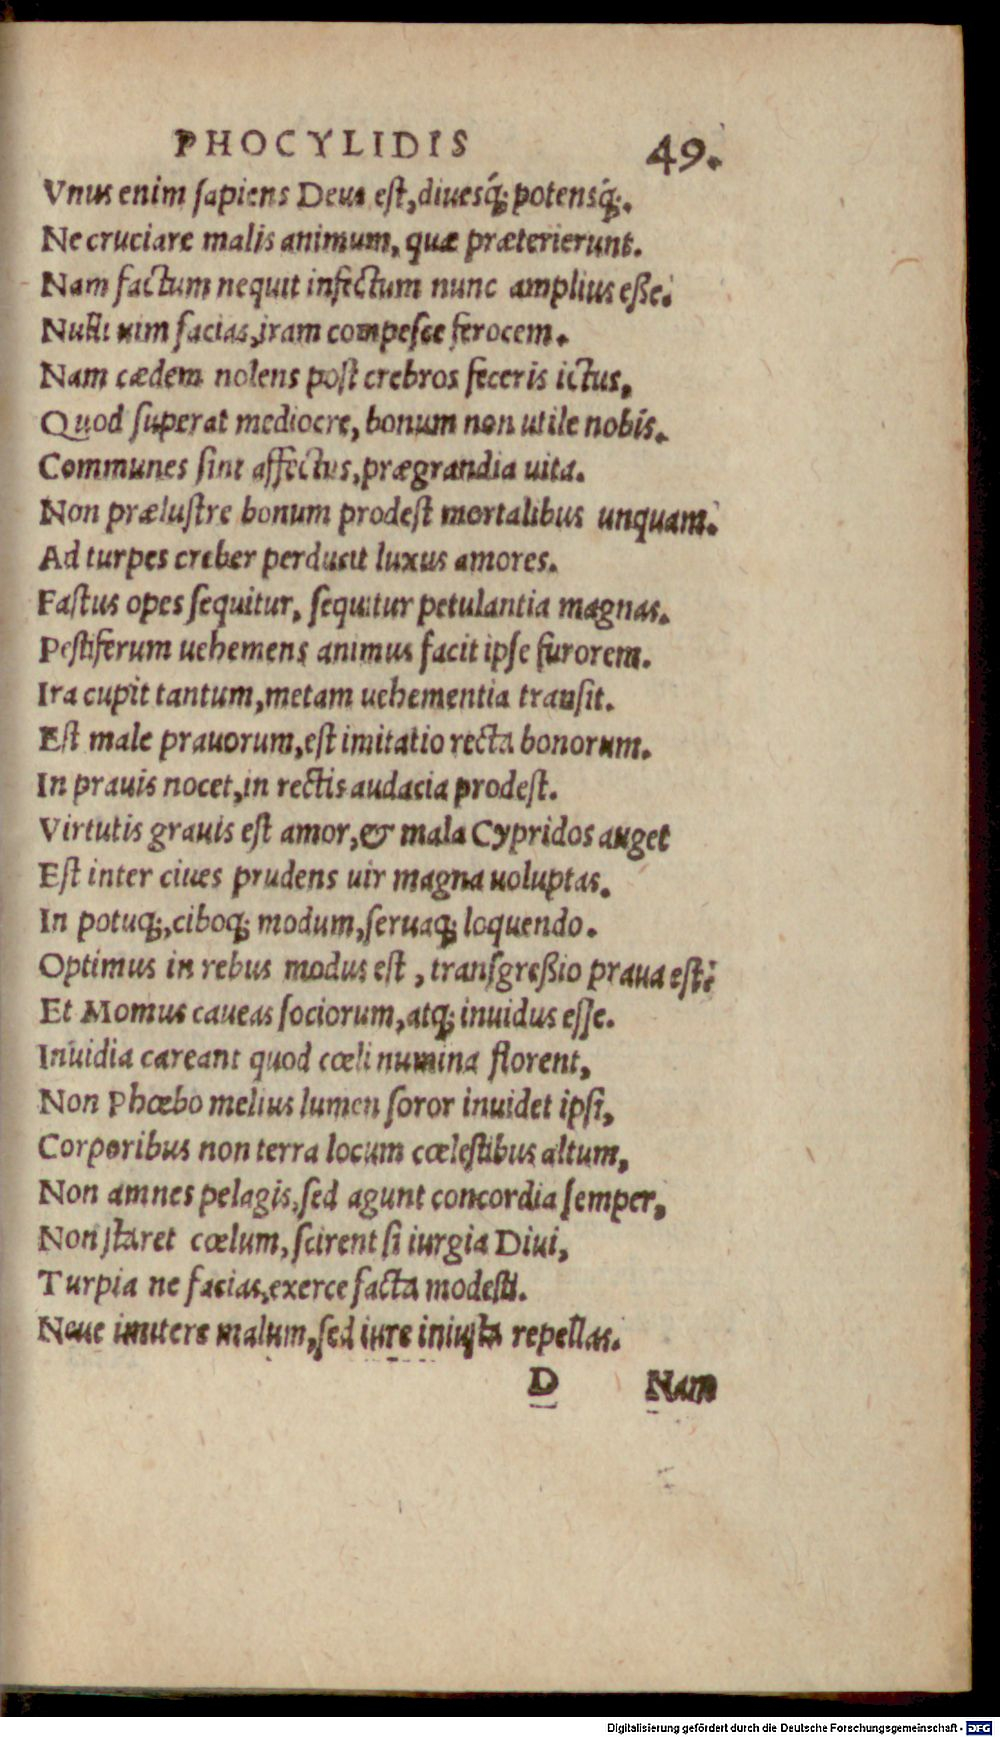 PHOCYLIDIS 49.
Vnus enim sapiens Deus est, diuesq́; potensq́;.
Ne cruciare malis animum, quæ præterierunt.
Nam factum nequit infectum nunc amplius eße.
Nulli uim facias, iram compesce ferocem.
Nam cædem nolens post crebros feceris ictus,
Quod superat mediocre, bonum non utile nobis.
Communes sint affectus, prægrandia uita.
Non prælustre bonum prodest mortalibus unquam.
Ad turpes creber perducit luxus amores.
Fastus opes sequitur, sequitur petulantia magnas.
Pestiferum uehemens animus facit ipse furorem.
Ira cupit tantum, metam uehementia transit.
Est male prauorum, est imitatio recta bonorum.
In prauis nocet, in rectis audacia prodest.
Virtutis grauis est amor, & mala Cypridos auget
Est inter ciues prudens uir magna uoluptas.
In potuq;, ciboq; modum, seruaq; loquendo.
Optimus in rebus modus est, transgreßio praua est.
Et Momus caueas sociorum, atq; inuidus esse.
Inuidia careant quod cœli numina florent,
Non Phœbo melius lumen soror inuidet ipsi,
Corporibus non terra locum cœlestibus altum,
Non amnes pelagis, sed agunt concordia semper,
Non staret cœlum, scirent si iurgia Diui,
Turpia ne facias, exerce facta modesti.
Neue imitere malum, sed iure iniusta repellas.
D Nam
Digitalisierung gefördert durch die Deutsche Forschungsgemeinschaft - DFG